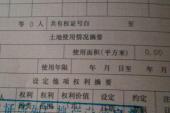 等0人 共有权证号自 至
土地使用情况摘要
使用面积(平方米) 0.00
使用年限 年 月 日至 年
设定他项权利摘要
权利 权利 权利价值 设定 约定